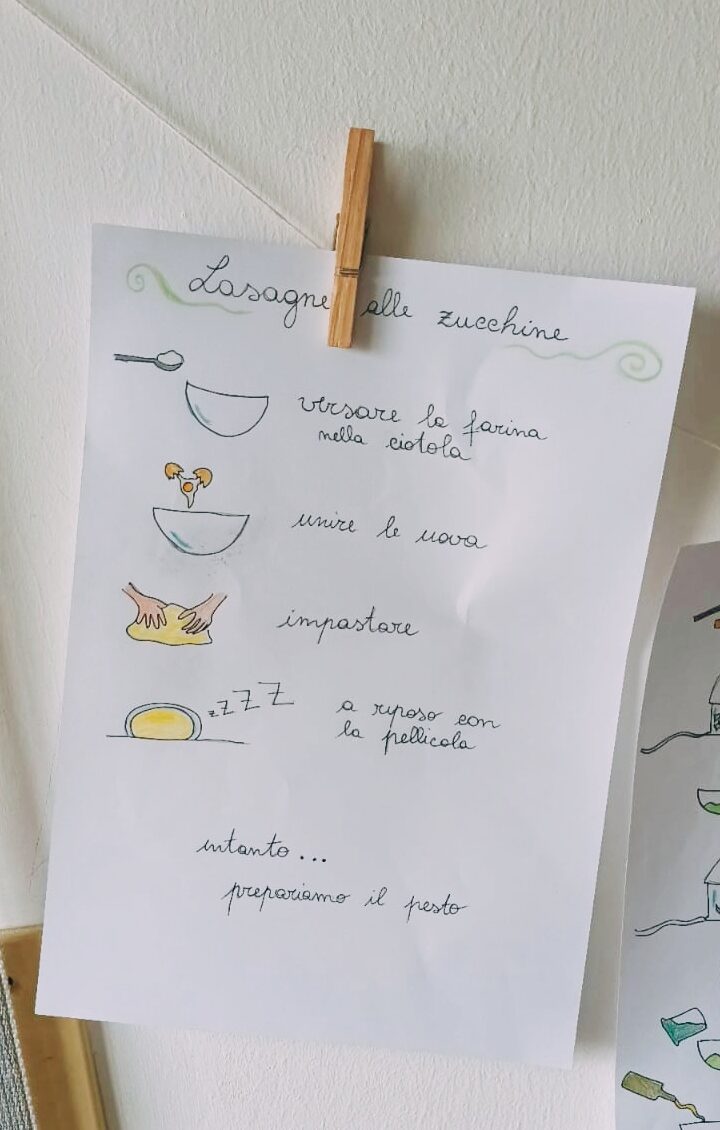 Lasagne alle zucchine
versare la farina
nella ciotola
unire le uova
impastare
zZZZ
a riposo con
la pellicola
intanto...
prepariamo il pesto